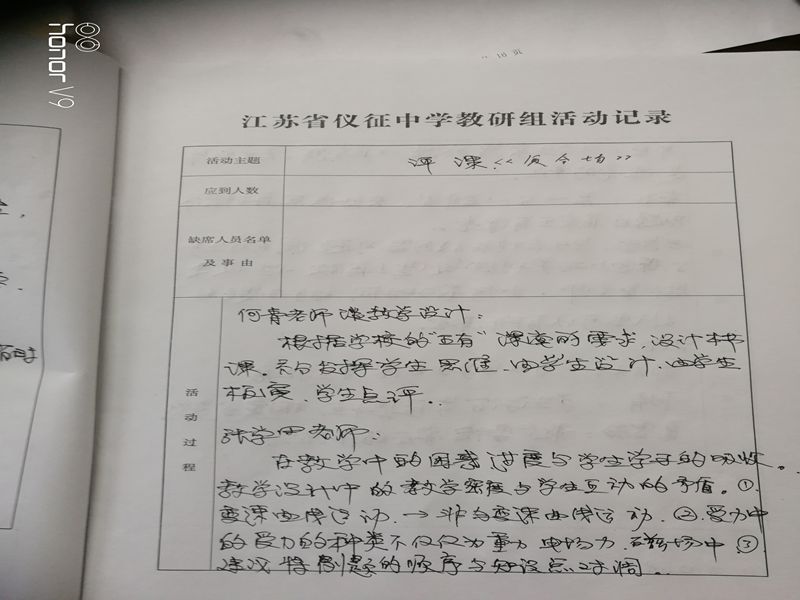 honor V9
18 页
江苏省仪征中学教研组活动记录
活动主题 评 课《复合场》
应到人数
缺席人员名单
及事由
活动过程
何青老师谈教学设计:
根据学校的"五有"课堂的要求,设计本节
课。充分发挥学生思维,由学生设计、由学生
板演、学生点评。
老师:
在教学中的困惑 进度与学生学习的吸收。
教学设计中的教学密度与学生互动的矛盾。①
变课曲线运动 → 非匀变课曲线运动. ②受力中
的受力的种类不仅仅为重力 电场力 磁场中 ③
建议将例题的顺序与知识点对调.